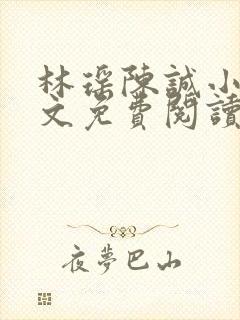 林瑤陳誠小
文免費閱讀
夜夢巴山